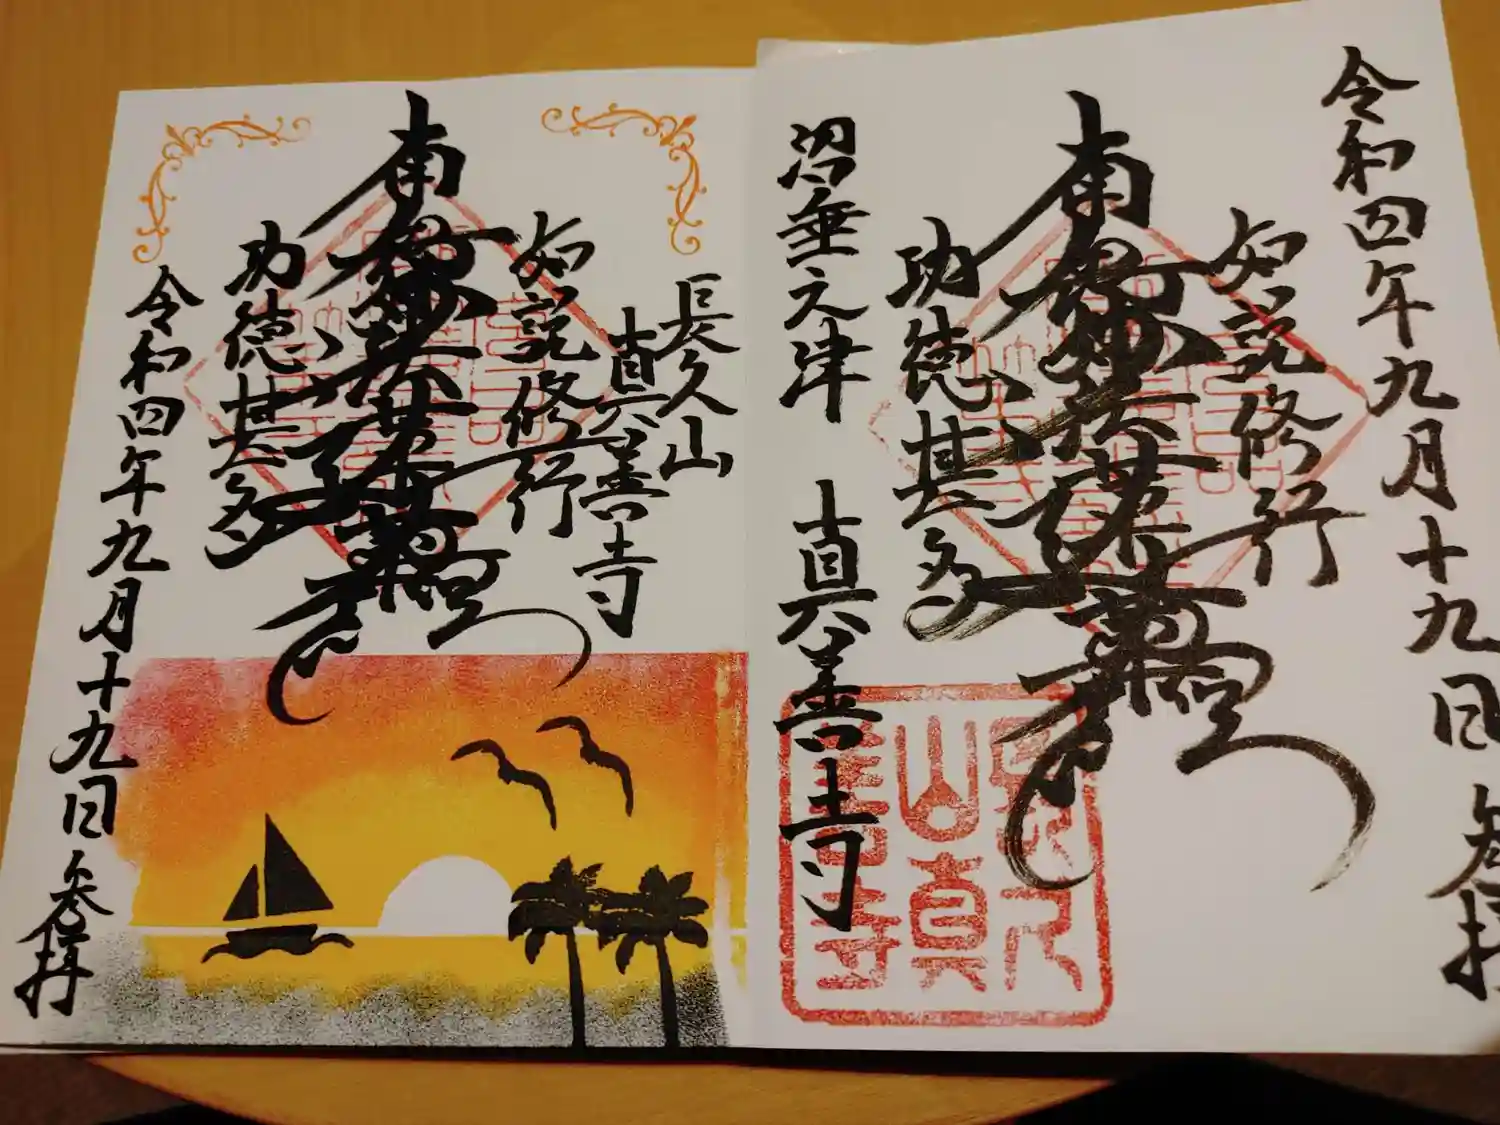 令和四年九月十九日 参拝
如説修行
南無妙法蓮華経
功徳甚多
沼垂之津 真善寺
長久山真善寺
長久山
真善寺
如説修行
南無妙法蓮華経
功徳甚多
令和四年九月十九日 参拝